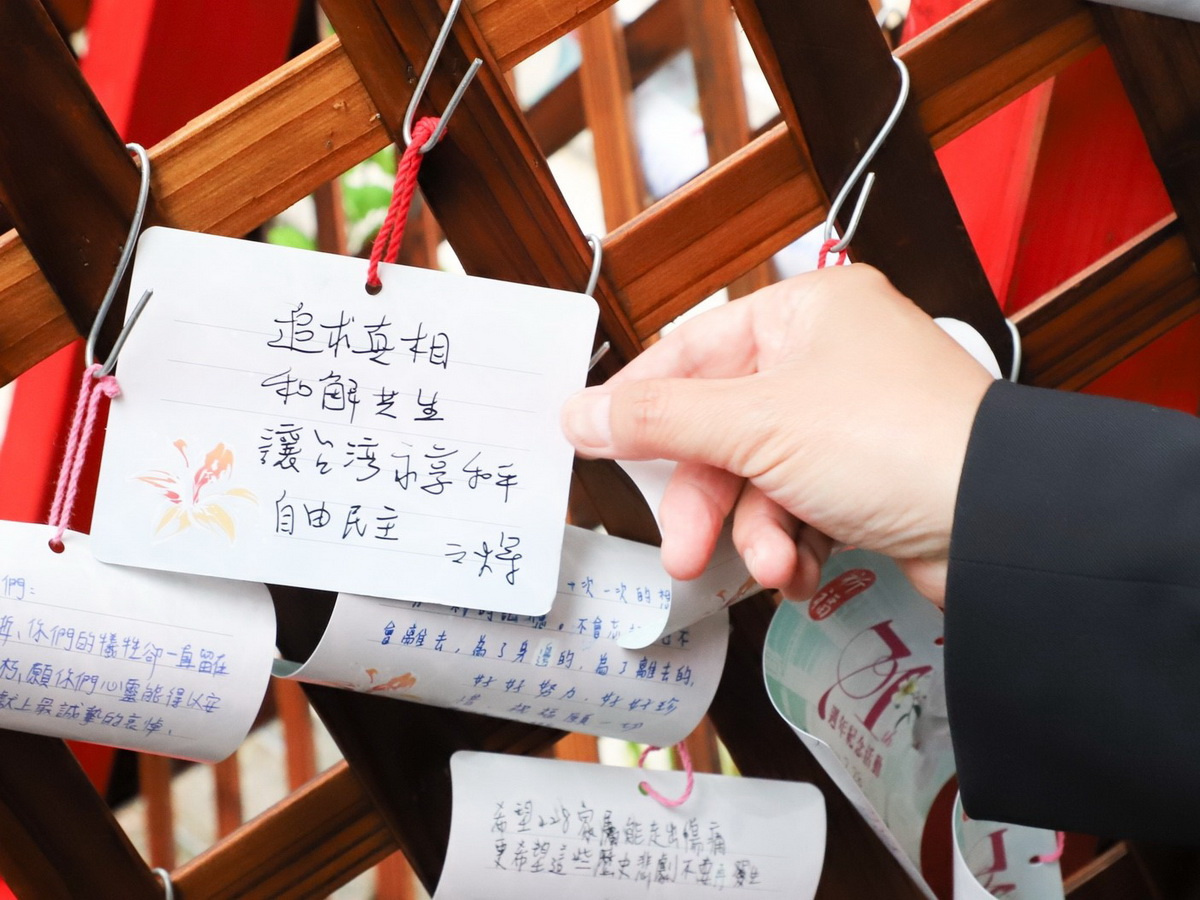 追求真相
和解共生
讓台湾永享和平
自由民主
們:
你們的犧牲卻一直留在
朽,願你們心靈能得以安
獻上最誠摯的哀悼.
一次一次的想
不會
會離去,為了身邊的,為了離去的,
好好努力,好好珍
一切
希望228家屬能走出傷痛
更希望這些歷史悲劇不要再
祈福
週年紀念活動